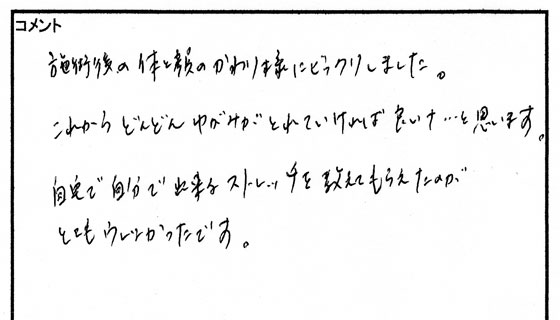 コメント
施術後の体と顔のかわり様にビックリしました。
これからどんどんゆがみがとれていければ良いナ…と思います。
自宅で自分で出来るストレッチを教えてもらえたのが
とてもウレしかったです。